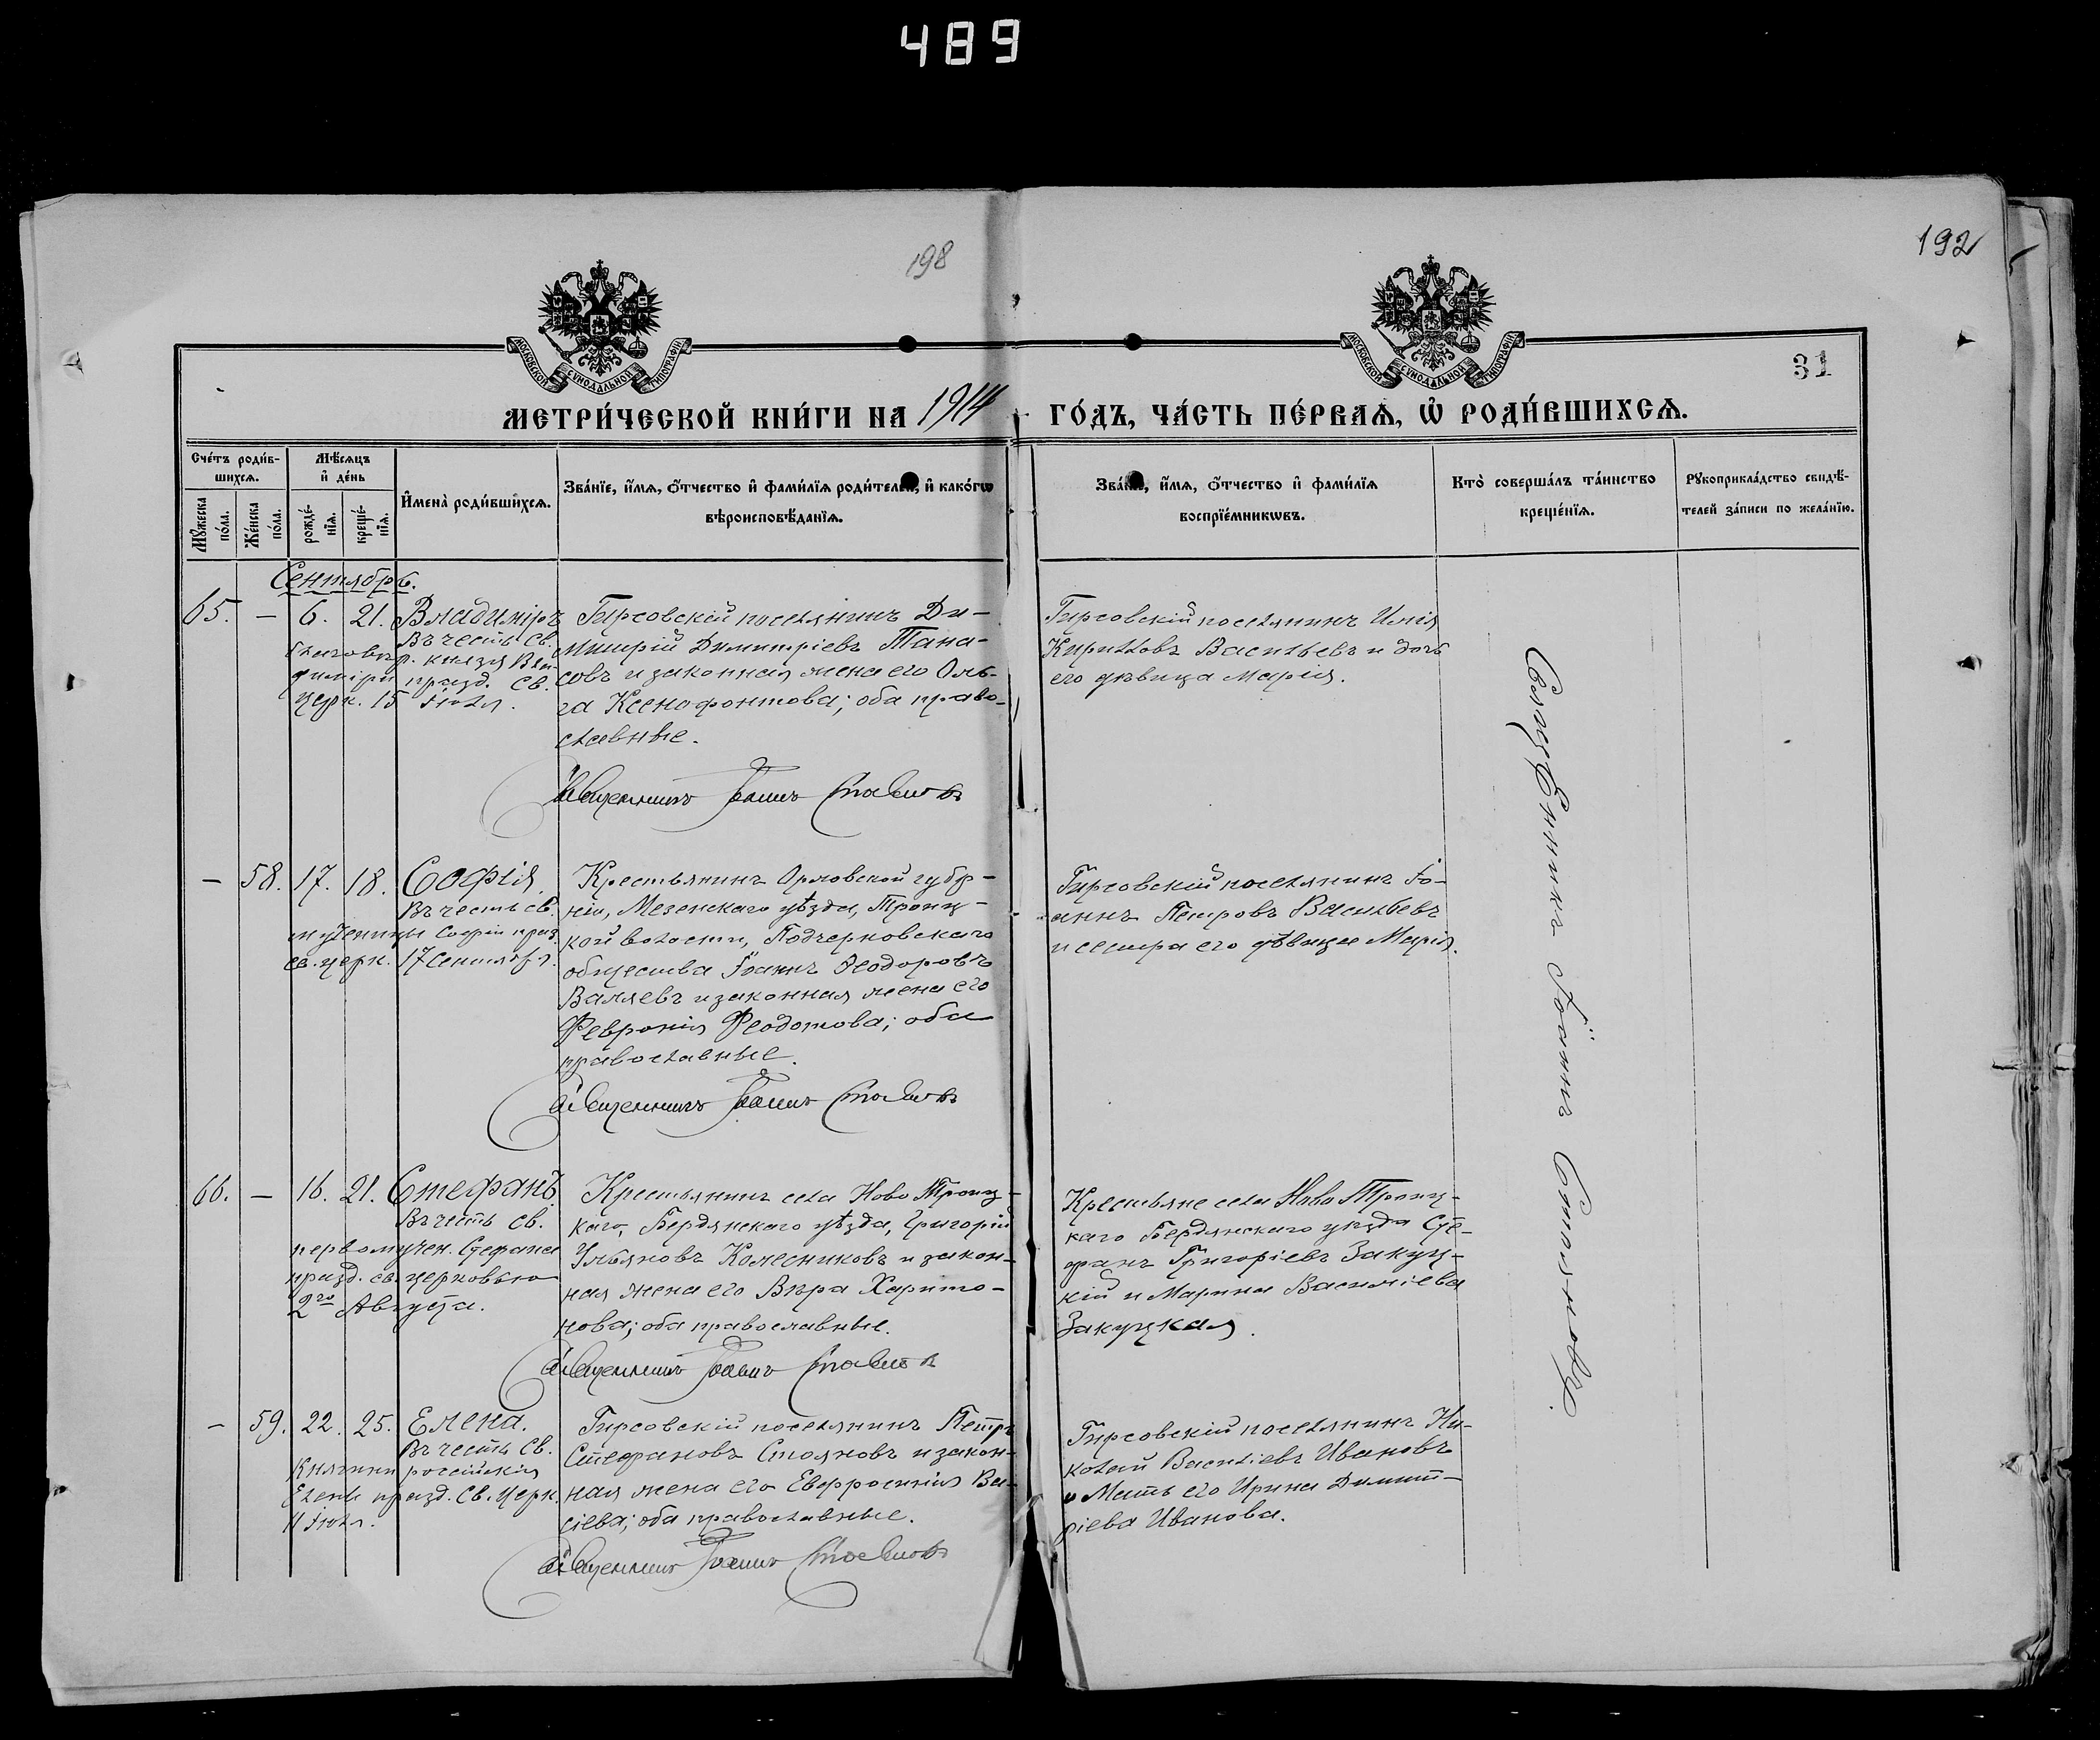 489
198
192
31
МОСКОВСКОЙ СѴНОДАЛЬНОЙ ТИПОГРАФІИ
МОСКОВСКОЙ СѴНОДАЛЬНОЙ ТИПОГРАФІИ
МЕТРИ́ЧЕСКОЙ КНИ́ГИ НА 1914 ГО́ДЪ, ЧА́СТЬ ПЕ́РВАѦ, Ѡ҆ РОДИ́ВШИХСѦ.
Сче́тъ роди́в-
шихсѧ.
Мꙋ́жеска по́ла.
Же́нска по́ла.
Мѣ́сѧцъ
и҆ де́нь
рожде́-
нїѧ.
креще́-
нїѧ.
И҆мена̀ роди́вшихсѧ.
Зва́нїе, и҆́мѧ, ѻ҆́тчество и҆ фами́лїѧ роди́телей, и҆ како́гѡ
вѣроисповѣ́данїѧ.
Зва́нїе, и҆́мѧ, ѻ҆́тчество и҆ фами́лїѧ
воспрїе́мникѡвъ.
Кто̀ соверша́лъ та́инство
креще́нїѧ.
Рꙋкоприкла́дство свидѣ́-
телей за́писи по жела́нїю.
Сентябрь.
65. — 6. 21. Владиміръ
Въ честь св.
благовѣр. князя Вла-
диміра празд. св.
церк. 15 Іюля.
Гирсовскій поселянинъ Ди-
митрій Димитріевъ Тана-
совъ и законная жена его Оль-
га Ксенофонтова; оба право-
славные.
Священникъ Іоаннъ Стояновъ
Гирсовскій поселянинъ Илія
Кирилловъ Васильевъ и дочь
его дѣвица Марія.
— 58. 17. 18. Софія.
Въ честь св.
мученицы Софіи празд.
св. церк. 17 Сентября.
Крестьянинъ Орловской губер-
ніи, Мезенскаго уѣзда, Троиц-
кой волости, Подчерковскаго
общества Іоаннъ Ѳеодоровъ
Валяевъ и законная жена его
Февронія Феодотова; оба
православные.
Священникъ Іоаннъ Стояновъ
Гирсовскій поселянинъ Іо-
аннъ Петровъ Васильевъ
и сестра его дѣвица Марія.
66. — 16. 21. Стефанъ
Въ честь св.
первомучен. Стефана
празд. св. церковью
2го Августа.
Крестьянинъ села Ново Троиц-
каго, Бердянскаго уѣзда, Григорій
Ульяновъ Колесниковъ и закон-
ная жена его Вѣра Харито-
нова; оба православные.
Священникъ Іоаннъ Стояновъ
Крестьяне села Ново Троиц-
каго Бердянскаго уѣзда Сте-
фанъ Григоріевъ Закуц-
кій и Марина Василіева
Закуцкая.
— 59. 22. 25. Елена.
Въ честь св.
Княгини россійскія
Елены празд. св. церк.
11 Іюля.
Гирсовскій поселянинъ Петръ
Стефановъ Стояновъ и закон-
ная жена его Евфросинія Ва-
сіева; оба православные.
Священникъ Іоаннъ Стояновъ
Гирсовскій поселянинъ Ни-
колай Василіевъ Ивановъ
и Мать его Ирина Димит-
ріева Иванова.
Священникъ Іоаннъ Стояновъ.